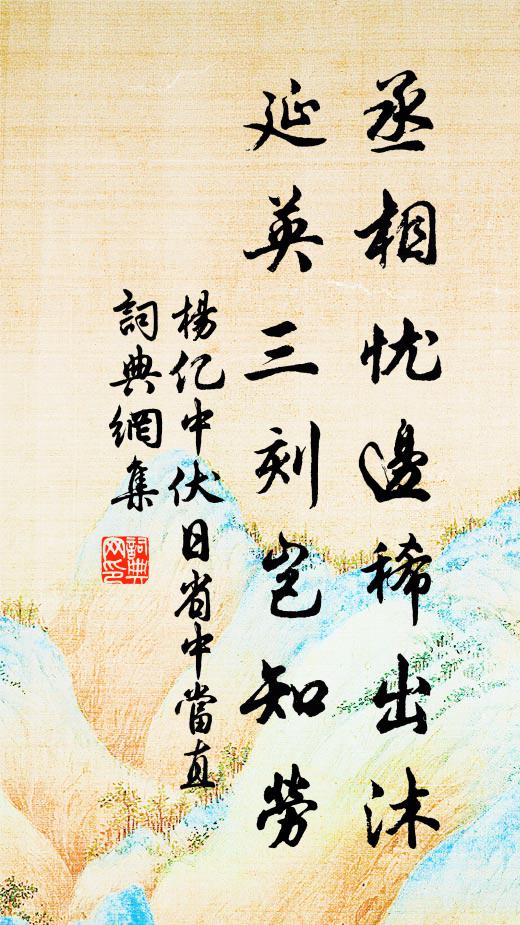 丞相忧邊稀出沐
延英三刻岂知勞
楊亿中伏日省中當直
詞典網集
詞典网印